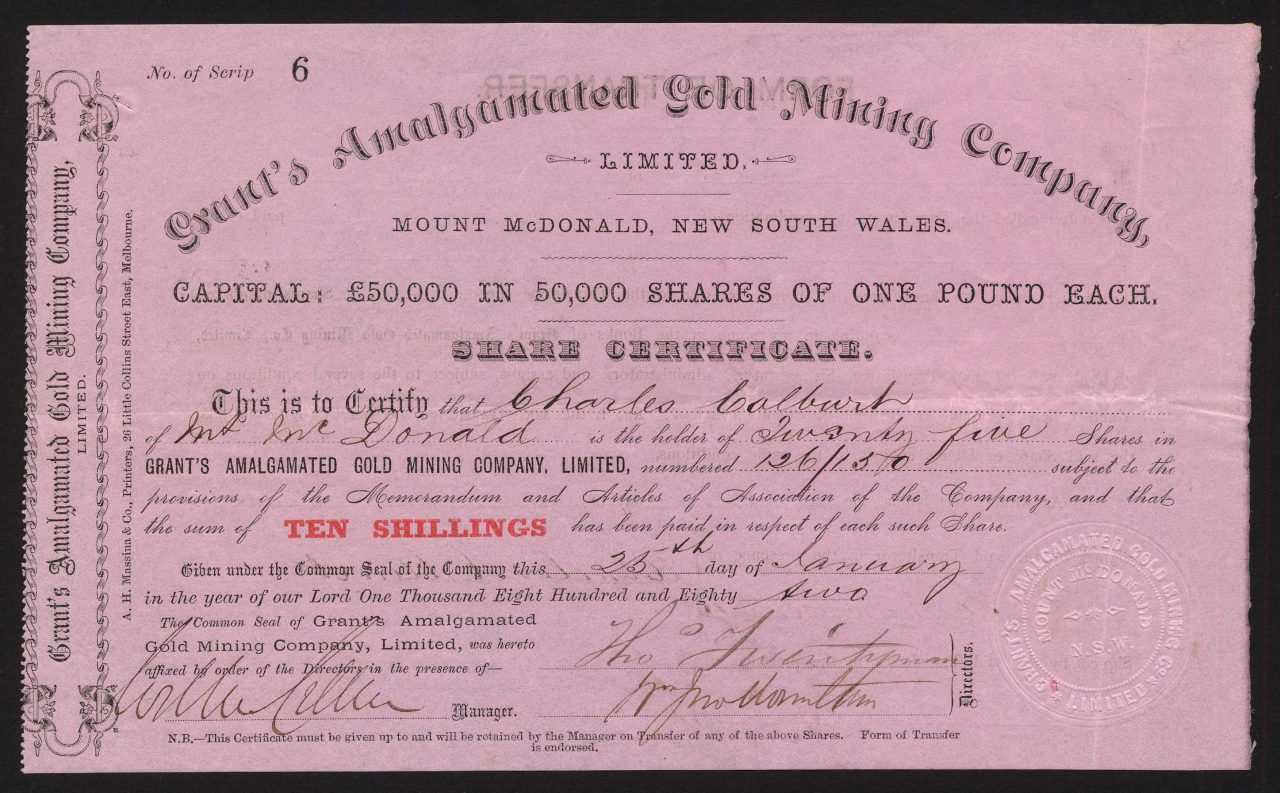 No. of Scrip 6
Grant's Amalgamated Gold Mining Company,
LIMITED.
MOUNT McDONALD, NEW SOUTH WALES.
CAPITAL: £50,000 IN 50,000 SHARES OF ONE POUND EACH.
SHARE CERTIFICATE.
This is to Certify that Charles Colburt
of Mt McDonald is the holder of Twenty five Shares in
GRANT'S AMALGAMATED GOLD MINING COMPANY, LIMITED, numbered 126/150 subject to the
provisions of the Memorandum and Articles of Association of the Company, and that
the sum of TEN SHILLINGS has been paid in respect of each such Share.
Given under the Common Seal of the Company this 25th day of January
in the year of our Lord One Thousand Eight Hundred and Eighty two
The Common Seal of Grant's Amalgamated
Gold Mining Company, Limited, was hereto
affixed by order of the Directors in the presence of—
Tho
Wm Hamilton
Directors.
Manager.
N.B.—This Certificate must be given up to and will be retained by the Manager on Transfer of any of the above Shares. Form of Transfer
is endorsed.
Grant's Amalgamated Gold Mining Company,
LIMITED.
A. H. Massina & Co., Printers, 26 Little Collins Street East, Melbourne.
GRANT'S AMALGAMATED GOLD MINING CO.
LIMITED
MOUNT McDONALD
N.S.W.